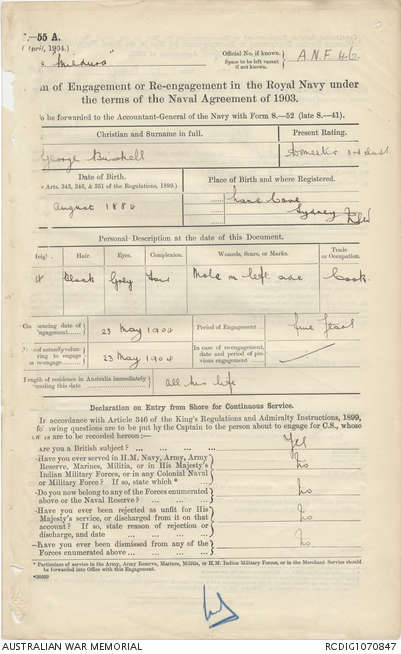 .—55 A.
April, 1904.)
"Mildura"
Official No. if known.
Space to be left vacant
if not known.
A.N.F 46
m of Engagement or Re-engagement in the Royal Navy under
the terms of the Naval Agreement of 1903.
o be forwarded to the Accountant-General of the Navy with Form S.—52 (late S.—41).
Christian and Surname in full.
Present Rating.
George Bushell
Domestic 3rd Class
Date of Birth.
Arts. 343, 344, & 351 of the Regulations, 1899.)
Place of Birth and where Registered.
August 1884
Lane Cove
Sydney NSW
Personal Description at the date of this Document.
Hair.
Eyes.
Complexion.
Wounds, Scars, or Marks.
Trade
or Occupation.
Black
Grey
Fair
Mole on left
Cook.
encing date of
engagement
23 May 1904
Period of Engagement
five Years
of actually volun-
ring to engage
re-engage
23 May 1904
In case of re-engagement,
date and period of pre-
vious engagement
ength of residence in Australia immediately
ceding this date
all his life
Declaration on Entry from Shore for Continuous Service.
In accordance with Article 346 of the King's Regulations and Admiralty Instructions, 1899,
following questions are to be put by the Captain to the person about to engage for C.S., whose
are to be recorded hereon :—
Are you a British subject? ... ... ... ...
Yes
Have you ever served in H.M. Navy, Army, Army
Reserve, Marines, Militia, or in His Majesty's
Indian Military Forces, or in any Colonial Naval
or Military Force? If so, state which *
No
Do you now belong to any of the Forces enumerated
above or the Naval Reserve?
No
Have you ever been rejected as unfit for His
Majesty's service, or discharged from it on that
account? If so, state reason of rejection or
discharge, and date
No
Have you ever been dismissed from any of the
Forces enumerated above
No
* Particulars of service in the Army, Army Reserve, Marines, Militia, or H.M. Indian Military Forces, or in the Merchant Service should
be forwarded into Office with this Engagement.
AUSTRALIAN WAR MEMORIAL
RCDIG1070847